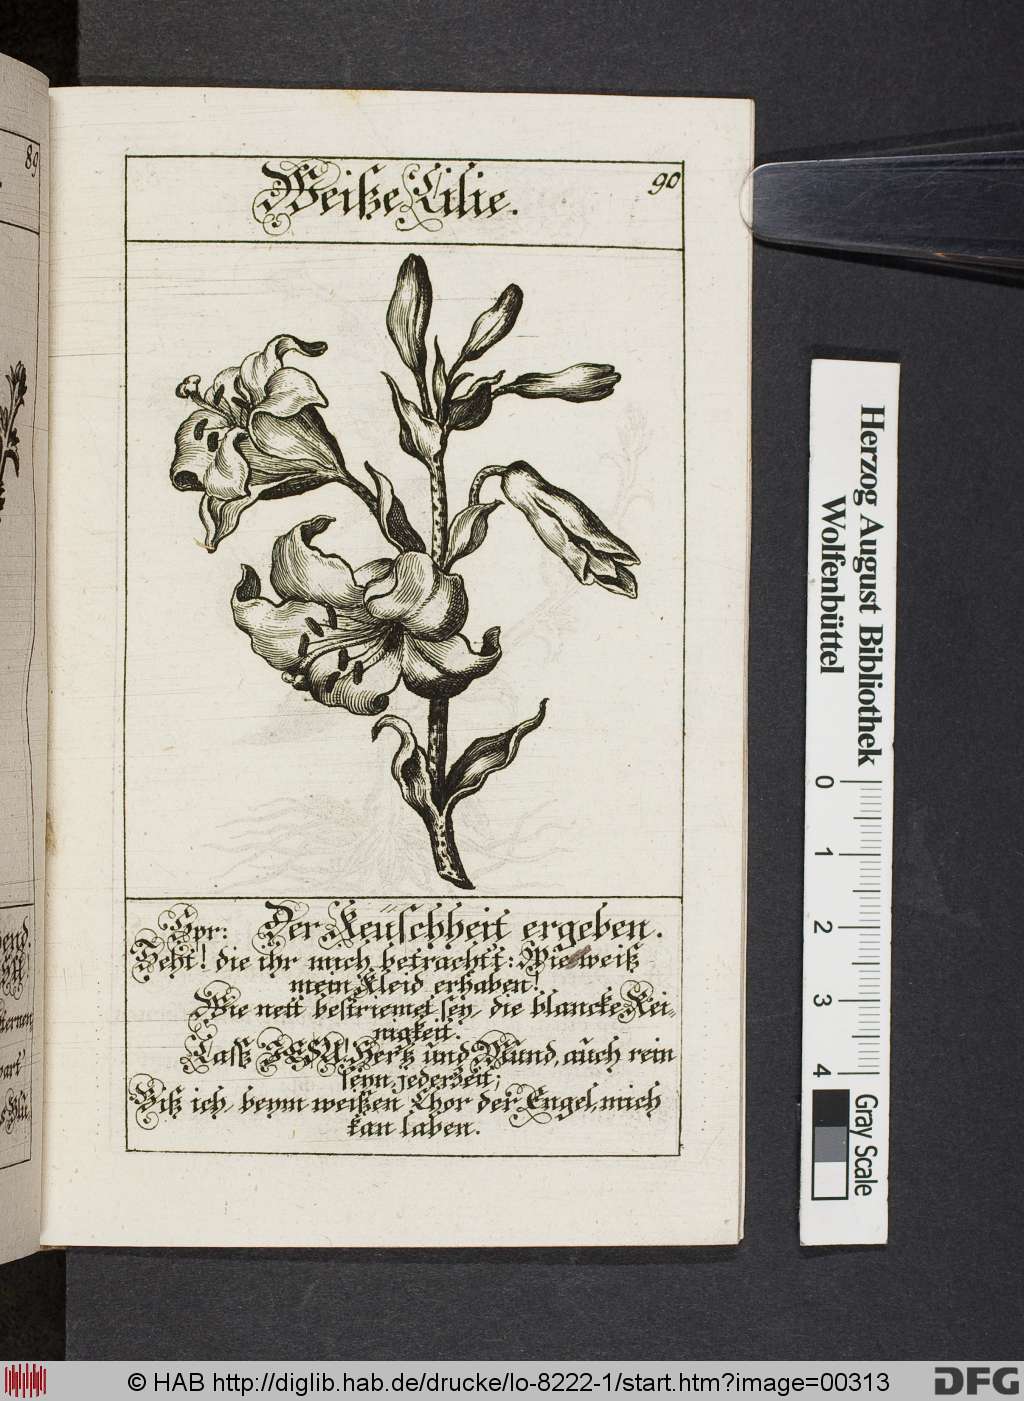 89
Weiße Lilie.
90
Spr: Der Keüschheit ergeben.
Seht! die ihr mich betrachtt: Wie weiß
mein Kleid erhaben!
Wie nett bestriemet sey, die blancke Rei-
nigkeit.
Lasß JESU! Hertz und Mund, auch rein
seyn jederzeit;
Biß ich, beym weißen Chor der Engel, mich
kan laben.
Herzog August Bibliothek
Wolfenbüttel
0 1 2 3 4
Gray Scale
© HAB http://diglib.hab.de/drucke/lo-8222-1/start.htm?image=00313
DFG